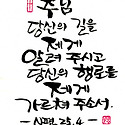 주님
당신의 길을
제게
알려 주시고
당신의 행로를
제게
가르쳐 주소서.
- 시편 25.4 -